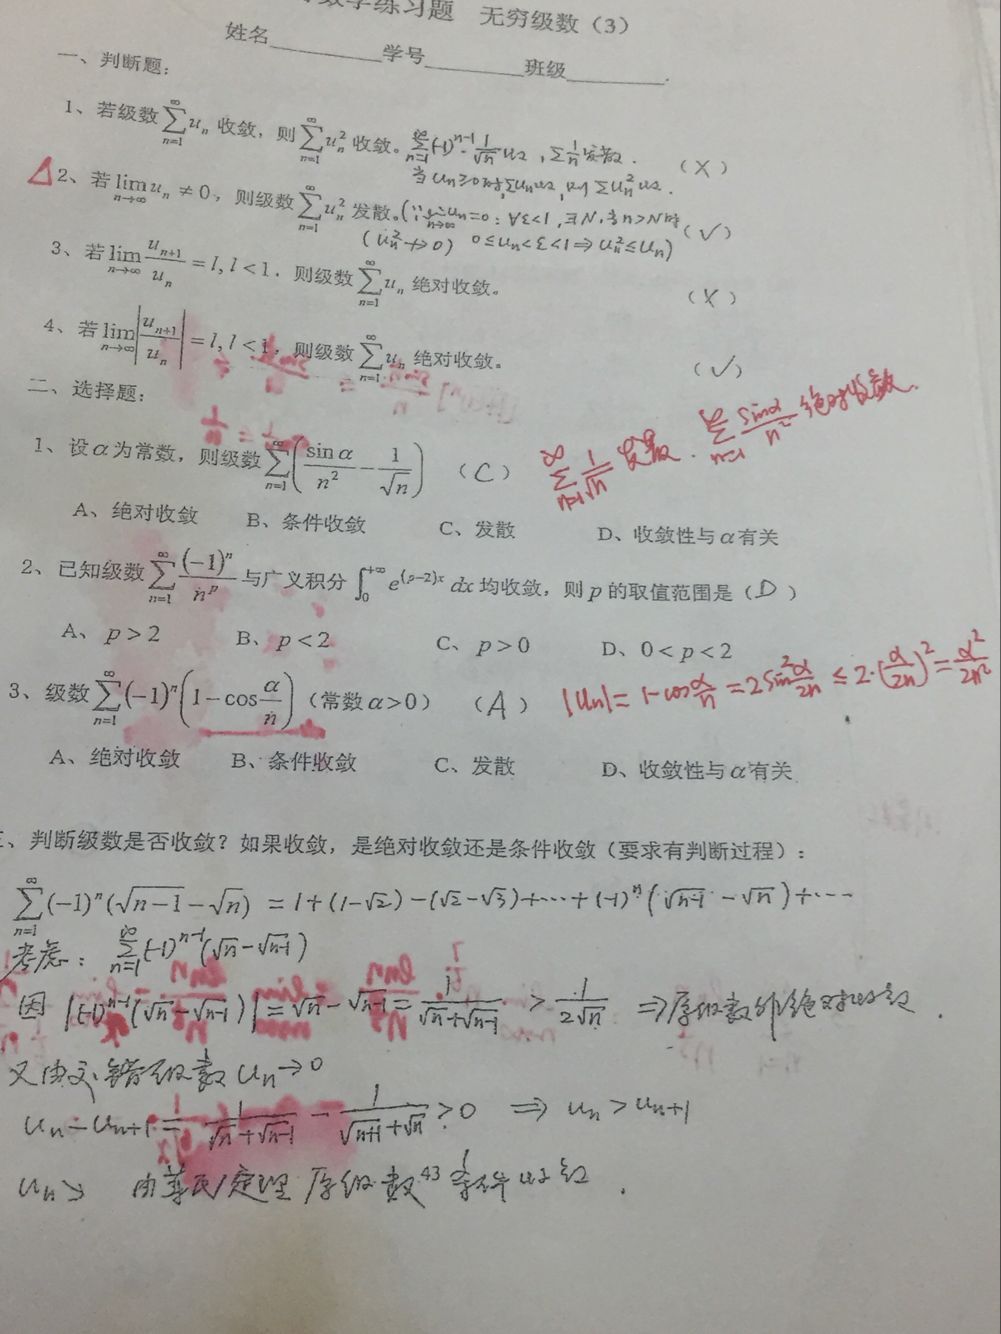 数学练习题 无穷级数（3）
姓名________学号________班级________.
一、判断题：
1、若级数∑_{n=1}^{∞}u_n 收敛，则∑_{n=1}^{∞}u_n^2 收敛。 ∑_{n=1}^{∞}(-1)^{n-1}·1/√n 收敛，∑1/n 发散. （×）
当 u_n≥0 时，∑u_n 收敛，则 ∑u_n^2 收敛.
△2、若 lim_{n→∞} u_n ≠ 0，则级数∑_{n=1}^{∞}u_n^2 发散。(∵ lim_{n→∞} u_n=0：∀ε<1，∃N，当 n>N 时 （√）
(u_n^2 ↛ 0) 0≤u_n<ε<1 ⇒ u_n^2≤u_n)
3、若 lim_{n→∞} u_{n+1}/u_n = l, l<1，则级数∑_{n=1}^{∞}u_n 绝对收敛。 （×）
4、若 lim_{n→∞} |u_{n+1}/u_n| = l, l<1，则级数∑_{n=1}^{∞}u_n 绝对收敛。 （√）
二、选择题：
1、设α为常数，则级数∑_{n=1}^{∞}(sinα/n^2 − 1/√n) （C） ∑_{n=1}^{∞} 1/√n 发散. ∑_{n=1}^{∞} sinα/n^2 绝对收敛.
A、绝对收敛 B、条件收敛 C、发散 D、收敛性与α有关
2、已知级数∑_{n=1}^{∞}(-1)^n/n^p 与广义积分 ∫_0^{+∞} e^{(p-2)x} dx 均收敛，则 p 的取值范围是（D）
A、p>2 B、p<2 C、p>0 D、0<p<2
3、级数∑_{n=1}^{∞}(-1)^n(1−cos α/n)（常数α>0） （A） |u_n|=1−cos α/n=2sin^2 α/2n ≤ 2·(α/2n)^2=α^2/2n^2
A、绝对收敛 B、条件收敛 C、发散 D、收敛性与α有关
三、判断级数是否收敛？如果收敛，是绝对收敛还是条件收敛（要求有判断过程）：
∑_{n=1}^{∞}(-1)^n(√(n−1)−√n) = 1+(1−√2)−(√2−√3)+⋯+(-1)^n(√(n−1)−√n)+⋯
考虑：∑_{n=1}^{∞}(-1)^{n-1}(√n−√(n−1))
因 |(-1)^{n-1}(√n−√(n−1))|=√n−√(n−1)=1/(√n+√(n−1)) > 1/(2√n) ⇒原级数非绝对收敛.
又由交错级数 u_n→0
u_n−u_{n+1}=1/(√n+√(n−1))−1/(√(n+1)+√n)>0 ⇒ u_n>u_{n+1}
u_n↘ 由莱氏定理原级数 43 条件收敛.